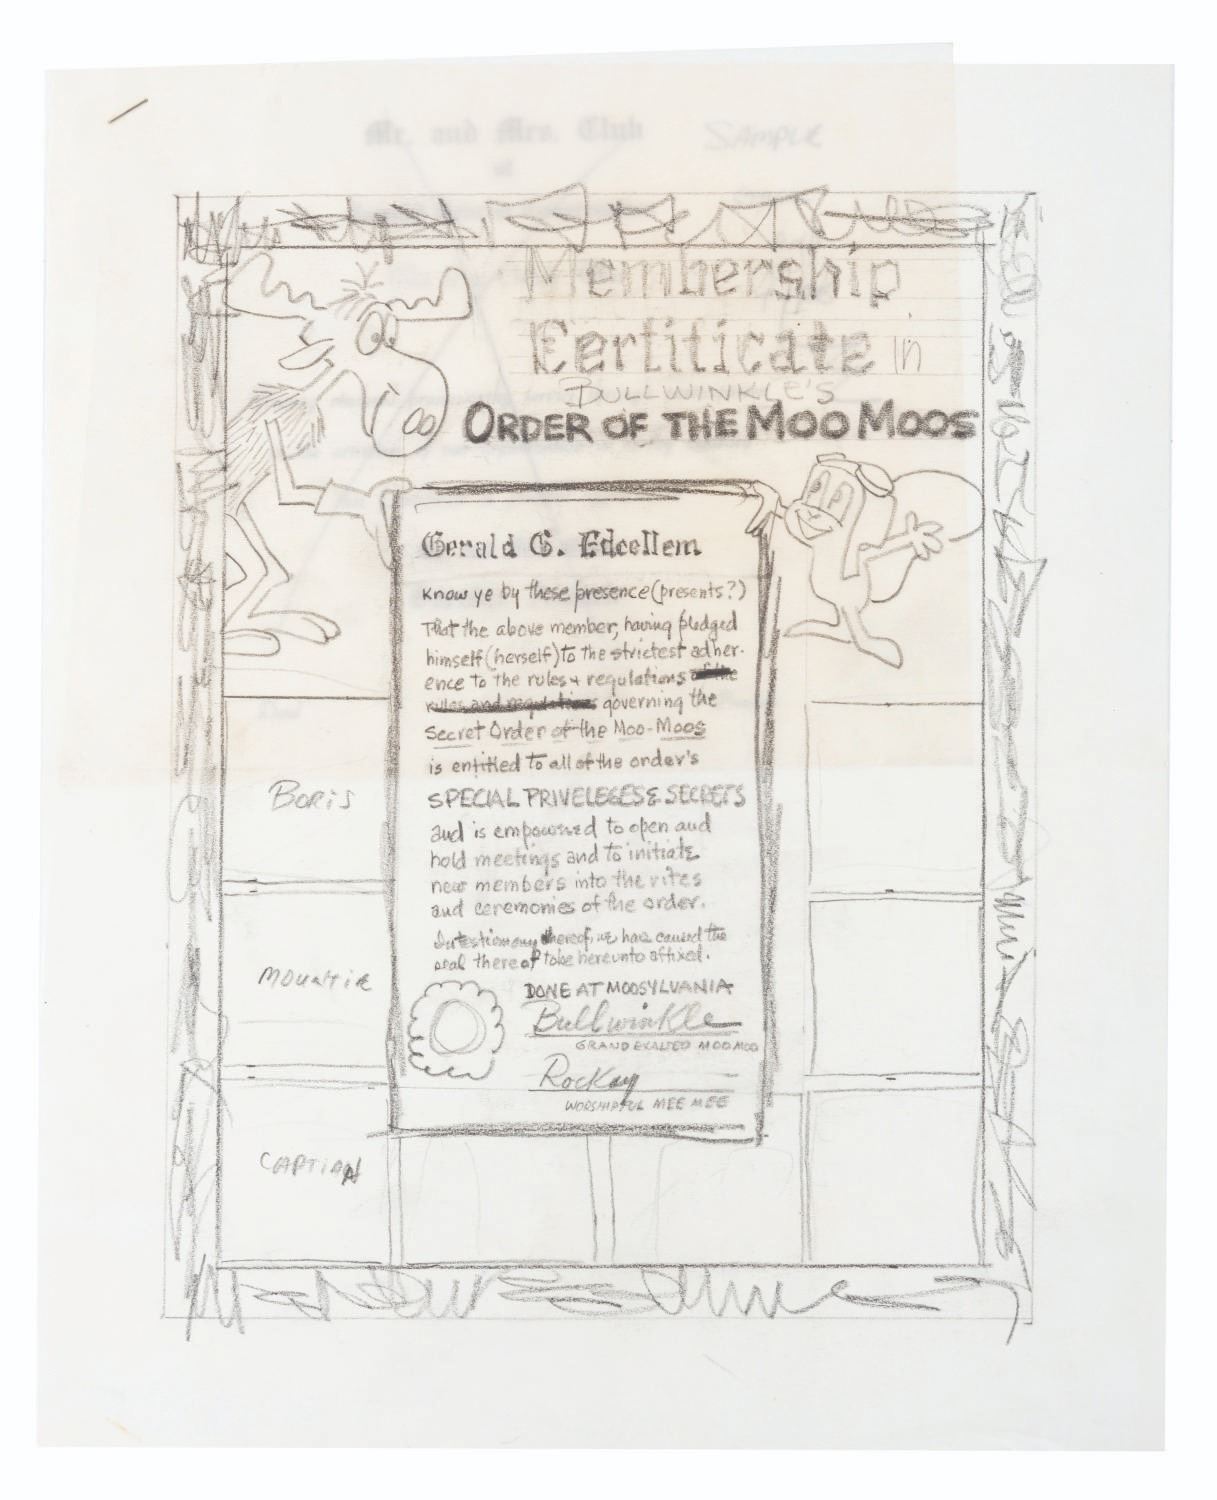 Mr. and Mrs. Club
SAMPLE
of
Membership
Certificate in
BULLWINKLE'S
ORDER OF THE MOO MOOS
Gerald G. Edcellem
Know ye by these presence (presents?)
That the above member, having pledged
himself (herself) to the strictest adher-
ence to the rules & regulations of the
rules and regulations governing the
Secret Order of the Moo-Moos
is entitled to all of the order's
SPECIAL PRIVELEGES & SECRETS
and is empowered to open and
hold meetings and to initiate
new members into the rites
and ceremonies of the order.
In testimony thereof, we have caused the
seal thereof to be hereunto affixed.
DONE AT MOOSYLVANIA
Bullwinkle
GRAND EXALTED MOO MOO
Rocky
WORSHIPFUL MEE MEE
BORIS
MOUNTIE
CAPTIAN